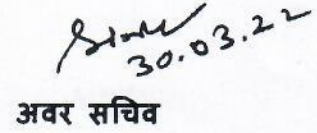 30.03.22
अवर सचिव